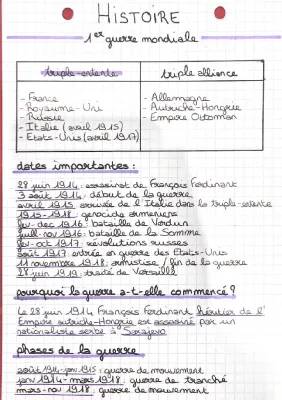 HISTOIRE
1er guerre mondiale
triple-entente triple alliance
- France - Allemagne
- Royaume-Uni - Autriche-Hongrie
- Russie - Empire Ottoman
- Italie (avril 1915)
- Etats-Unis (avril 1917)
dates importantes :
28 juin 1914 : assassinat de François Ferdinant
3 août 1914 : début de la guerre
avril 1915 : arrivée de l'Italie dans la triple-entente
1915-1918 : genocide armeniens
fev-dec 1916 : bataille de Verdun
juill-nov 1916 : bataille de la Somme
fev-oct 1917 : révolutions russes
août 1917 entrée en guerre des Etats-Unis
11 novembre 1918 : armistice / fin de la guerre
28 juin 1919 : traité de Versaille
pourquoi la guerre a-t-elle commencé ?
Le 28 juin 1914 François Ferdinant héritier de l'
Empire autriche-Hongrie est assassiné par un
nationaliste serbe à Sarajevo
phases de la guerre
août 1914-janv 1915 : guerre de mouvement
janv 1914-mars 1918 : guerre de tranché
mars-nov 1918 : guerre de mouvement